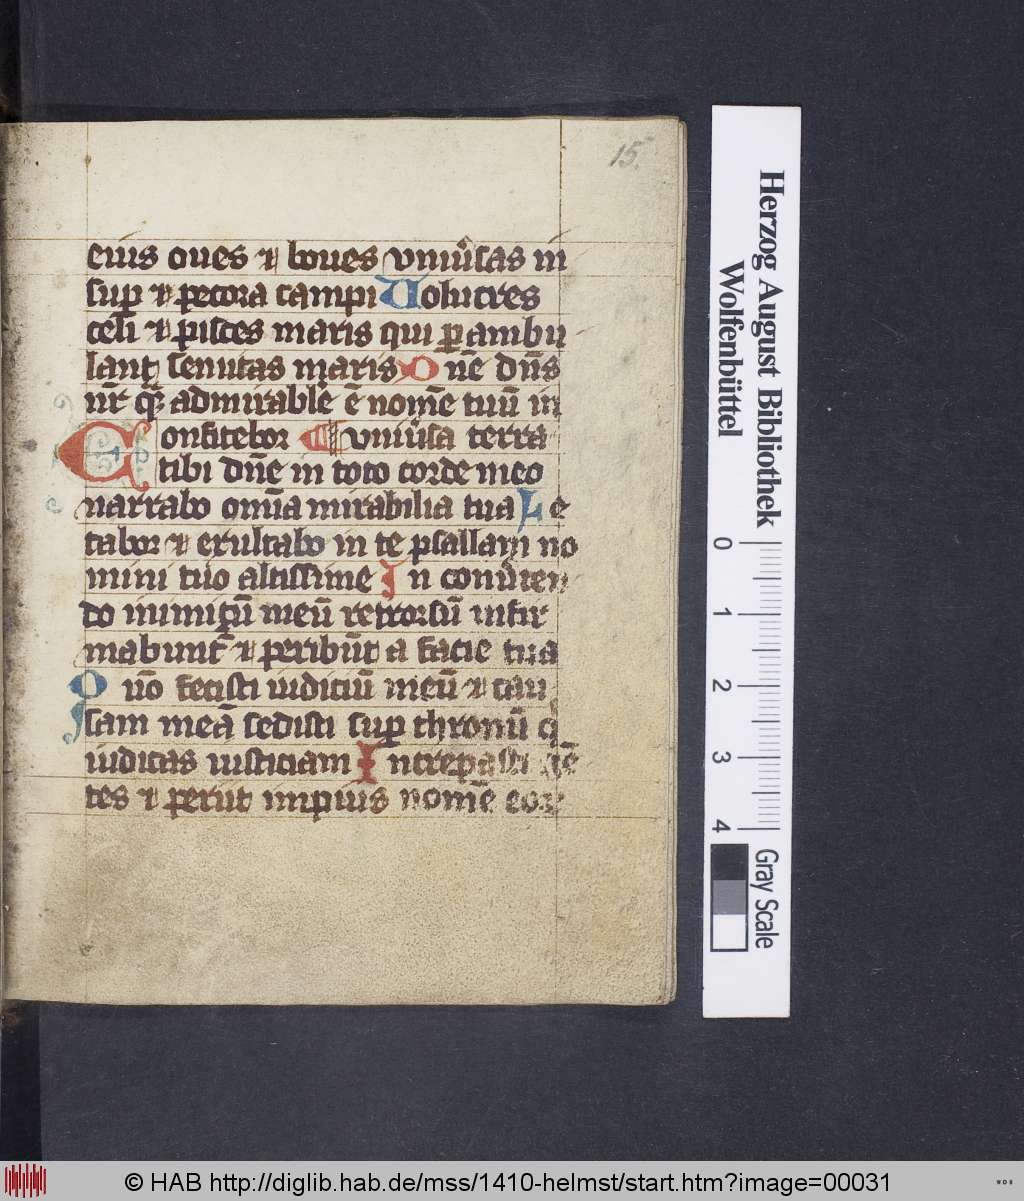 15.
eius oues ⁊ boues vniũsas in
suꝑ ⁊ pecora campi Volucres
celi ⁊ pisces maris qui ꝑambu
lant semitas maris Dñe dñs
nr̃ q̃ admirabile ẽ nomẽ tuũ in
Confitebor vniũsa terra
tibi dñe in toto corde meo
narrabo omĩa mirabilia tua Le
tabor ⁊ exultabo in te psallam no
mini tuo altissime In conũten
do inimicũ meũ retrorsũ infir
mabunt̃ ⁊ peribũt a facie tua
Qm̃ fecisti iudiciũ meũ ⁊ cau
sam meã sedisti suꝑ thronũ q̇
iudicas iusticiam Increpasti gẽ
tes ⁊ periit impius nomẽ eor
Herzog August Bibliothek
Wolfenbüttel
0 1 2 3 4
Gray Scale
© HAB http://diglib.hab.de/mss/1410-helmst/start.htm?image=00031